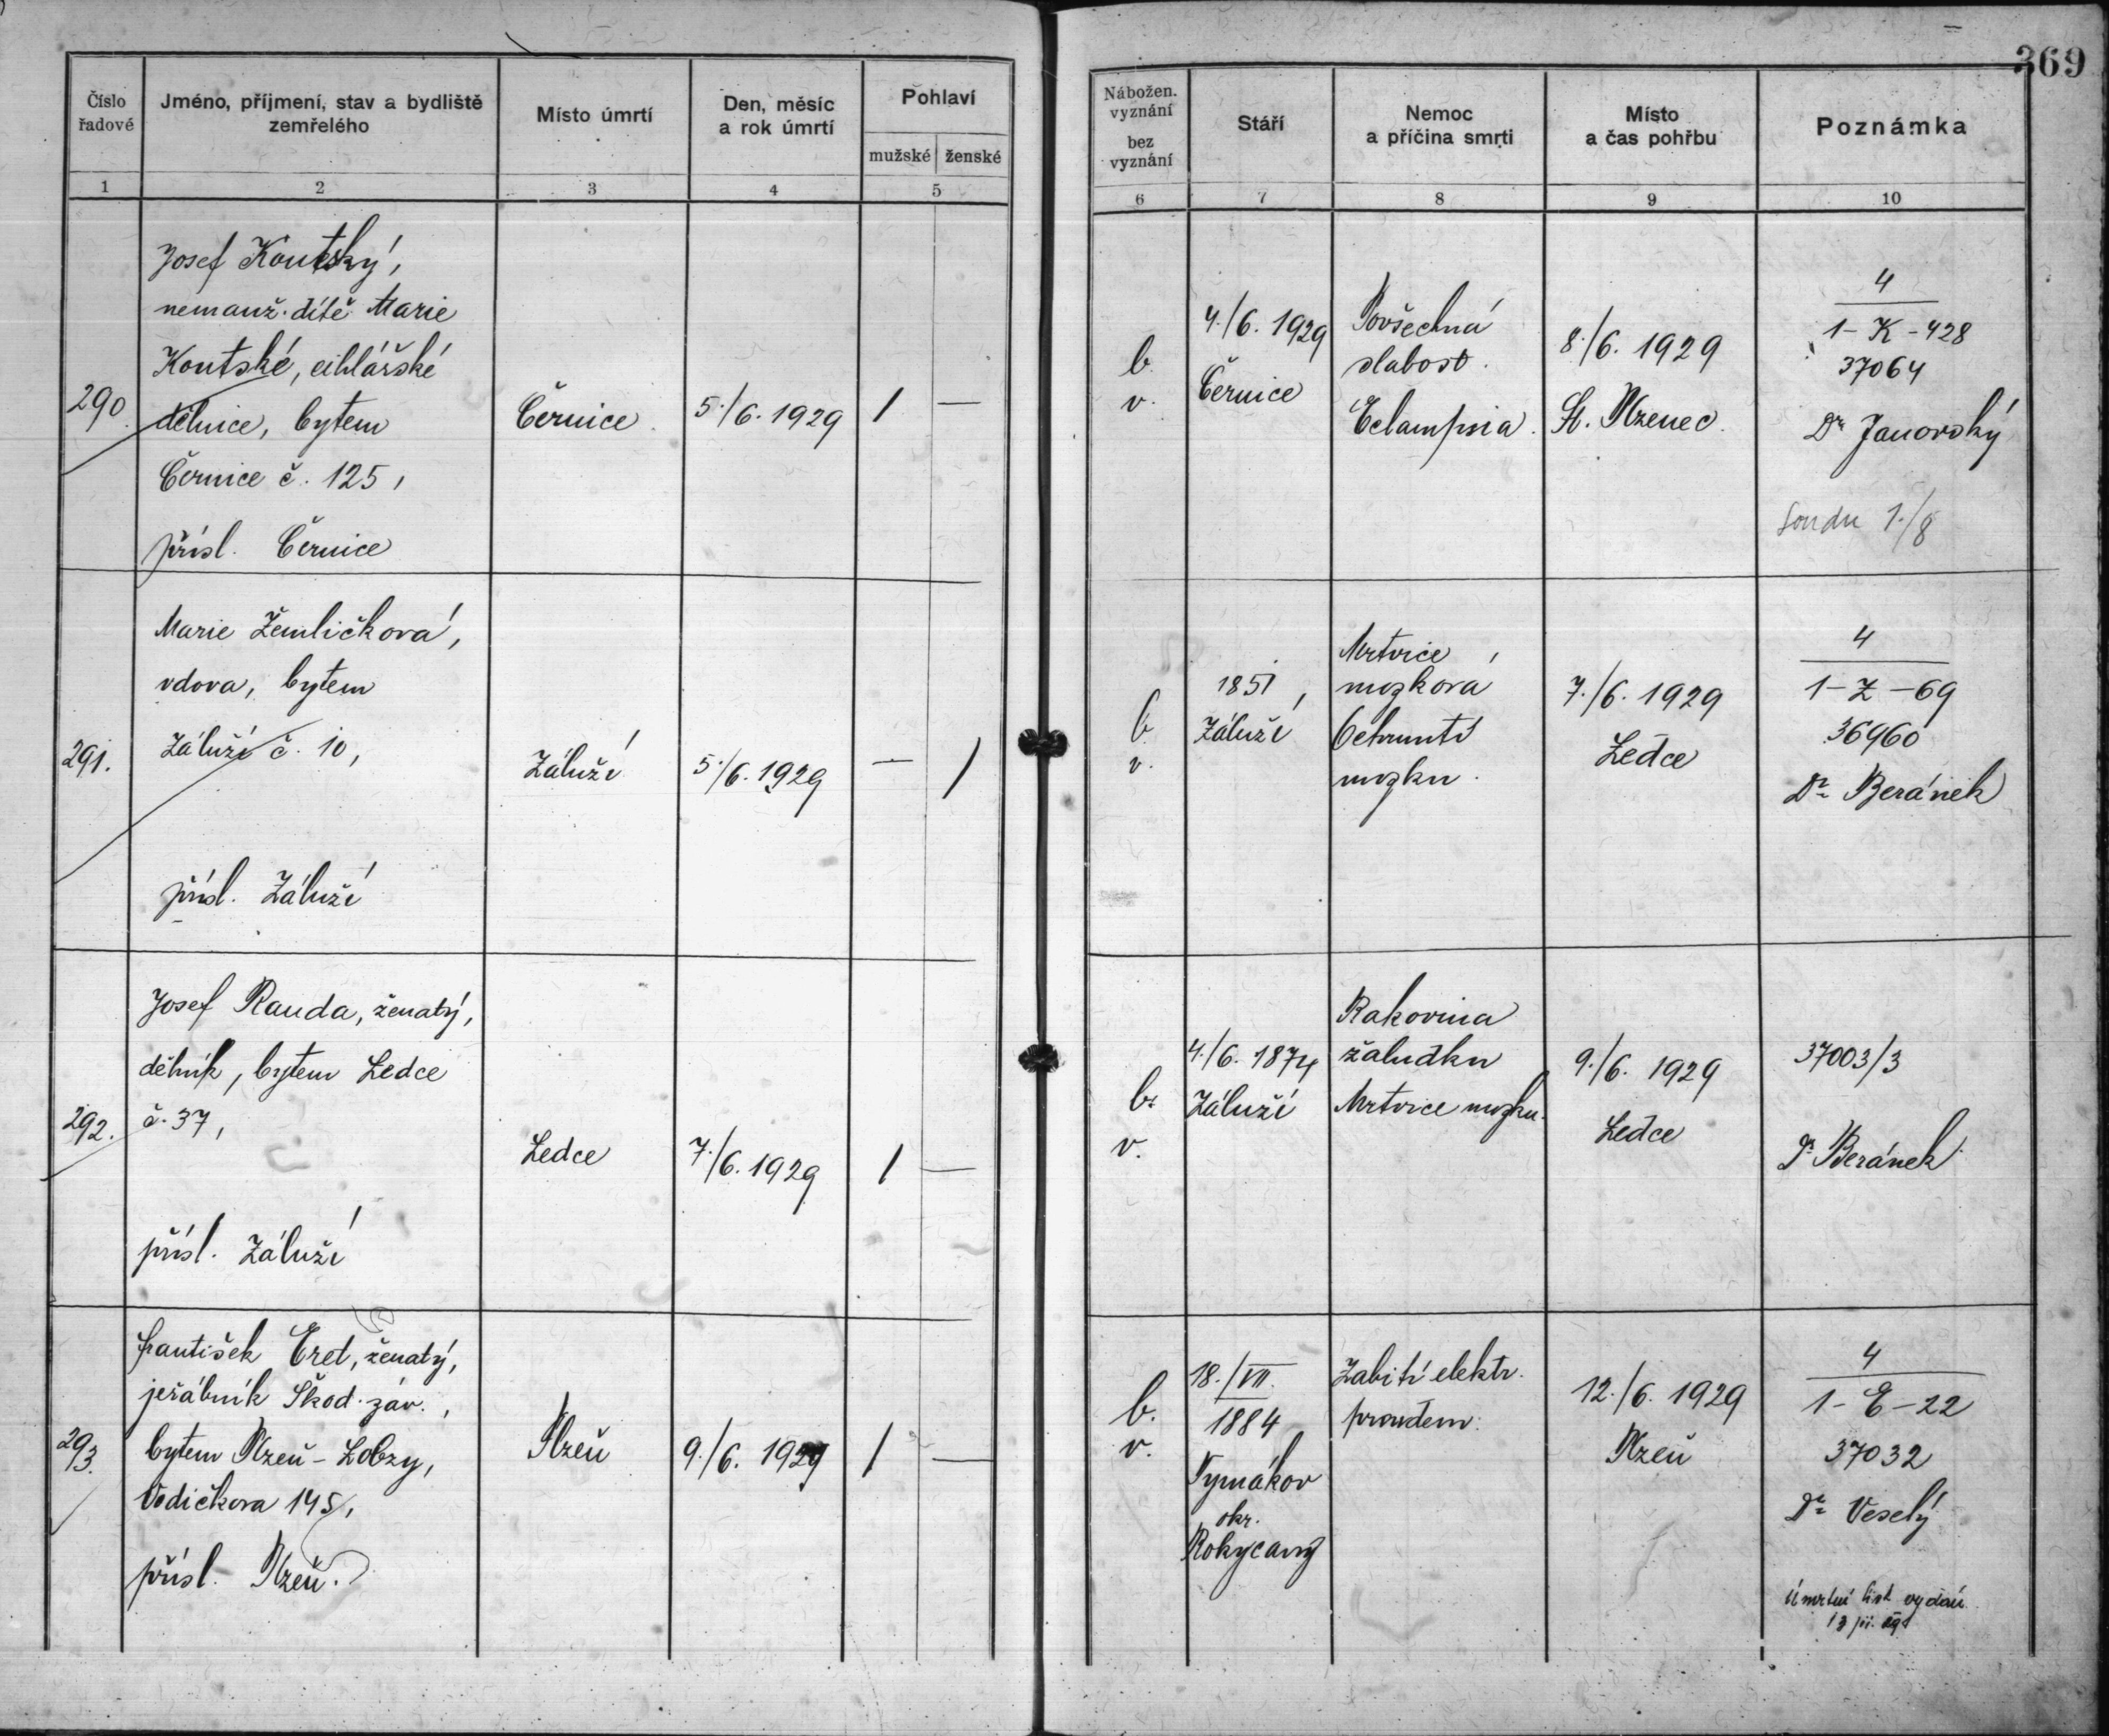 369
Číslo řadové
Jméno, příjmení, stav a bydliště zemřelého
Místo úmrtí
Den, měsíc a rok úmrtí
Pohlaví
mužské ženské
Nábožen. vyznání
bez vyznání
Stáří
Nemoc a příčina smrti
Místo a čas pohřbu
Poznámka
1 2 3 4 5 6 7 8 9 10
290.
Josef Koutský,
nemanž. dítě Marie
Koutské, cihlářské
dělnice, bytem
Černice č. 125,
přísl. Černice
Černice.
5./6. 1929
1 —
b.
v.
4./6. 1929
Černice
Povšechná
slabost.
Eclampsia.
8./6. 1929
St. Plzenec.
4
1-K-428
37064
Dr Janovský
Soudu 1./8
291.
Marie Žemličková,
vdova, bytem
Záluží č. 10,
přísl. Záluží
Záluží
5./6. 1929
— 1
b.
v.
1851,
Záluží
Mrtvice
mozková
Ochrnutí
mozku.
7./6. 1929
Ledce
4
1-Z-69
36960
Dr Beránek
292.
Josef Rauda, ženatý,
dělník, bytem Ledce
č. 37,
přísl. Záluží
Ledce
7./6. 1929
1 —
b.
v.
4./6. 1874
Záluží
Rakovina
žaludku
Mrtvice mozku.
9./6. 1929
Ledce
37003/3
Dr Beránek
293.
František Eret, ženatý,
jeřábník Škod. záv.,
bytem Plzeň-Lobzy,
Vodičkova 145,
přísl. Plzeň.
Plzeň
9./6. 1929
1 —
b.
v.
18./VII.
1884
Tymákov
okr.
Rokycany
Zabití elektr.
proudem.
12./6. 1929
Plzeň
4
1-E-22
37032
Dr Veselý
Úmrtní list vydán